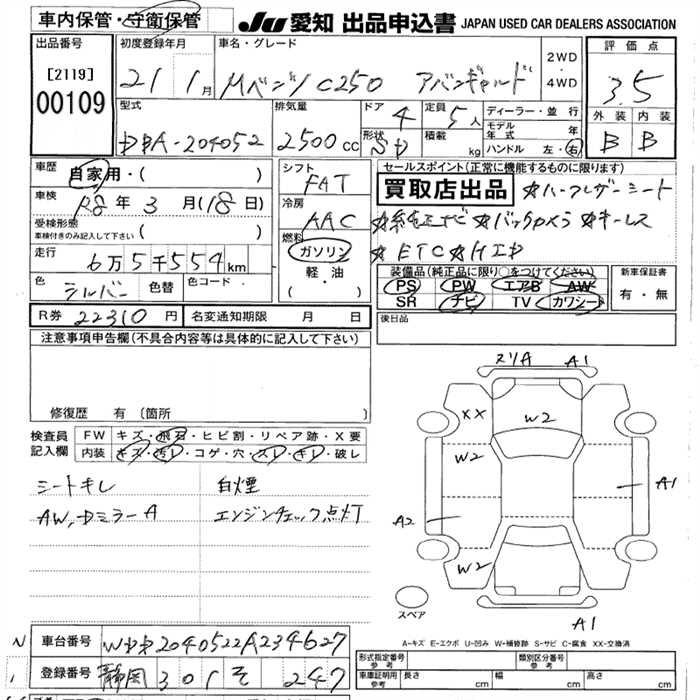 車内保管・守衛保管
JU 愛知 出品申込書 JAPAN USED CAR DEALERS ASSOCIATION
出品番号
[2119]
00109
初度登録年月
21 1月
車名・グレード
Mベンツ C250 アバンギャルド
2WD・4WD
評価点
3.5
外装 内装
B B
型式
DBA-204052
排気量
2500cc
ドア
4
形状
SD
定員
5人
積載
kg
ディーラー・並行
モデル年式 年
ハンドル 左・右
車歴
自家用・( )
車検
R8年 3月(18日)
受検形態
車検付きのみ記入して下さい ( )
走行
6万5千554km
色
シルバー
色替
色コード・
( )
シフト
FAT
冷房
AAC
燃料
ガソリン
軽・油
( ・ )
セールスポイント(正常に機能するものに限ります)
買取店出品 ☆ハーフレザーシート
☆純正ナビ☆バックカメラ☆キーレス
☆ETC☆HID
装備品(純正品に限り○をつけてください)
PS PW エアB AW
SR ナビ TV カワシート
新車保証書
有・無
R券 22310円
名変通知期限 月 日
後日品
注意事項申告欄(不具合内容等は具体的に記入して下さい)
修復歴 有〔箇所
検査員記入欄
FW キズ・飛石・ヒビ割・リペア跡・X要
内装 キズ・汚レ・コゲ・穴・スレ・キレ・破レ
シートキレ 白煙
AW,Dミラー A エンジンチェック点灯
スリA A1
XX
W2
W2
A1
A2
W2
スペア
A1
A-キズ E-エクボ U-凹み W-補修跡 S-サビ C-腐食 XX-交換済
車台番号 WDD2040522A234627
登録番号 静岡 301 そ 247
形式指定番号 参考
類別区分番号 参考
車庫証明用 参考 長さ cm 幅 cm 高さ cm